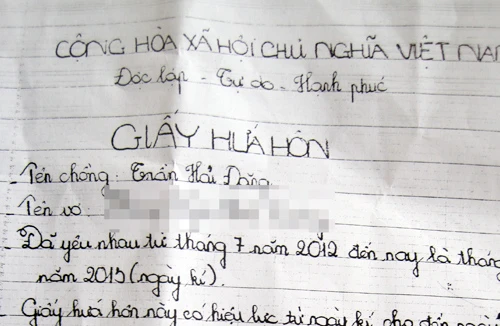 CỘNG HÒA XÃ HỘI CHỦ NGHĨA VIỆT NAM
Độc lập - Tự do - Hạnh phúc
GIẤY HỨA HÔN
- Tên chồng: Trần Hải Đăng
- Tên vợ:
- Đã yêu nhau từ tháng 7 năm 2012 đến nay là tháng
năm 2015 (ngày kí).
- Giấy hứa hôn này có hiệu lực từ ngày kí cho đến ngày